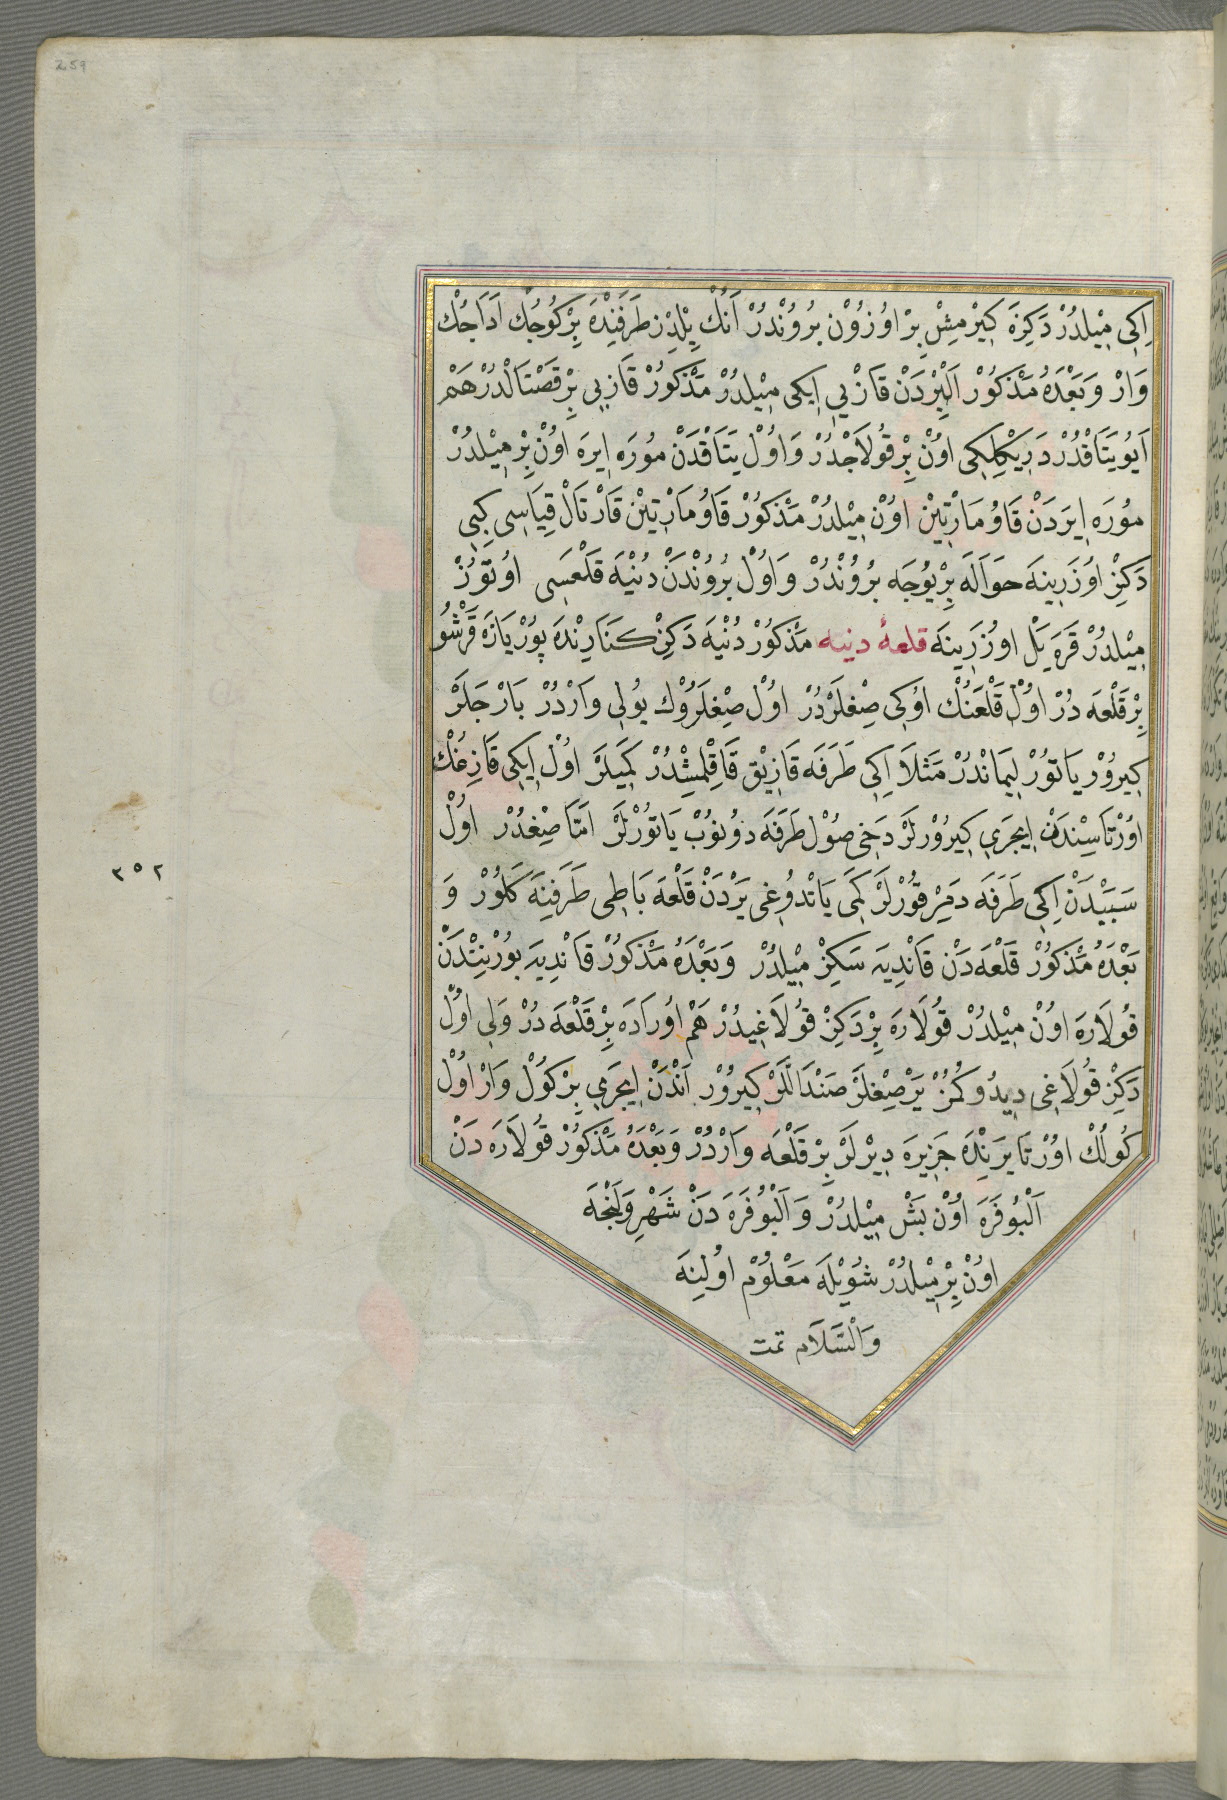 259
اِكِى مِيْلدُرْ دَكِزَه كِيرْمِشْ بِرْ اوُزُوْن بُرُوُنْدُرْ اَنُكْ يِلْدِزْ طَرَفِنْدَه بِرْ كُوُجُكْ اَدَاجُكْ
وَارْ وَبَعْدَهُ مَذْكوُرْ اَلْبِرْدَنْ قَازْبِى اِيكى مِيْلدُرْ مَذْكوُرْ قَازبِى بِرْ قَصْتَالْدُرْ هَمْ
اَيُو يَتَاقْدُرْ دَرِيكْلِكِى اوُنْ بِرْ قوُلَاجْدُرْ وَاوُلْ يَتَاقْدَنْ موُرَه اِيرَه اوُنْ بِرْ مِيْلدُرْ
موُرَه اِيرَدَنْ قَاوُ مَارْتِيْن اوُنْ مِيْلدُرْ مَذْكوُرْ قَاوُ مَارْتِيْن قَارْتَالْ قِيَاسِى كِبِى
دَكِزْ اوُزَرِينَه حَوَالَه بِرْ يوُجَه بُرُوُنْدُرْ وَاوُلْ بُرُوُنْدَنْ دُنْيَه قَلْعَسِى اوُتوُزْ
مِيْلدُرْ قَرَه يَلْ اوُزَرِينَه قلعهٔ دنيه مَذْكوُرْ دُنْيَه دَكِزْ كَنَارِنْدَه پوُرْيَازَه قَرْشُو
بِرْ قَلْعَه دُرْ اوُلْ قَلْعَنُكْ اوُكِى صِغلَرْدُرْ اوُلْ صِغلَرُوْكْ يوُلِى وَارْدُرْ بَارْجَلَرْ
كِيرُوْر يَاتوُرْ لِيمَانْدُرْ مَثَلاَ اِكِى طَرَفَه قَازِيْق قَاقِلْمِشْدُرْ كَمِيلَرْ اوُلْ اِيكِى قَازِغُكْ
اوُرْتَاسِنْدَنْ اِيچَرِي كِيرُوْرلَرْ دَخِى صوُلْ طَرَفَه دوُنوُبْ يَاتوُرْلَرْ اَمَّا صِغدُرْ اوُلْ
سَبَبْدَنْ اِكِى طَرَفَه دَمِرْ قوُرْلَرْ كَمِى يَاتْدوُغِى يَرْدَنْ قَلْعَه بَاطِى طَرَفِينَه كَلوُرْ وَ
بَعْدَهُ مَذْكوُرْ قَلْعَه دَنْ قَانْدِيَه سَكِزْ مِيْلدُرْ وَبَعْدَهُ مَذْكوُرْ قَانْدِيَه بوُرْنِنْدَنْ
قوُلَارَه اوُنْ مِيْلدُرْ قوُلَارَه بِرْ دَكِزْ قوُلَاغِيدُرْ هَمْ اوُرَادَه بِرْ قَلْعَه دُرْ وَلِى اوُلْ
دَكِزْ قوُلَاغِى دِيدُوكُمُزْ يَرْ صِغلَرْ صَنْدَاللَرْ كِيرُوْر اَنْدَنْ اِيچَرِي بِرْ كوُلْ وَارْ اوُلْ
كُولُكْ اوُرْتَا يَرِنْدَه جَزِيرَه دِيْرلَرْ بِرْ قَلْعَه وَارْدُرْ وَبَعْدَهُ مَذْكوُرْ قوُلَارَه دَنْ
اَلْبوُفَرَه اوُنْ بَشْ مِيْلدُرْ وَاَلْبوُفَرَه دَنْ شَهْرِ وَلَنْجَه
اوُنْ بِرْ مِيْلدُرْ شوُيْلَه مَعْلوُمْ اوُلِنَه
وَالسَّلَام تمت
٣٥٢